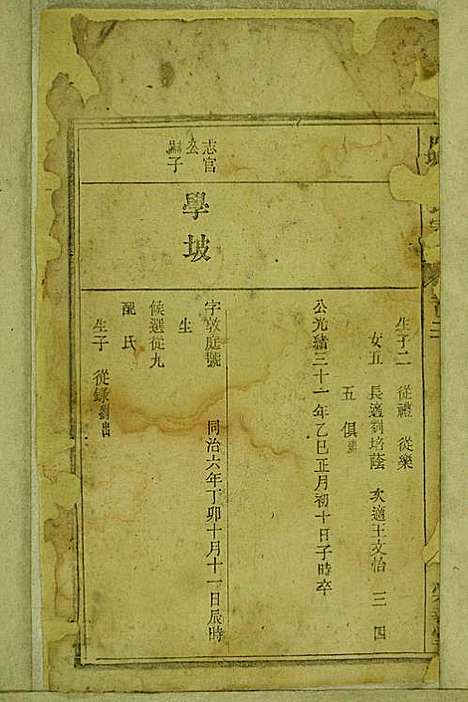 生子二 從禮 從樂
女五 長適劉培蔭 次適王文怡 三 四
五 俱
公光緒三十一年乙巳正月初十日子時卒
志官
公
子
學坡
字敦庭號 同治六年丁卯十月十一日辰時
生
候選從九
配氏
生子 從錄劉出